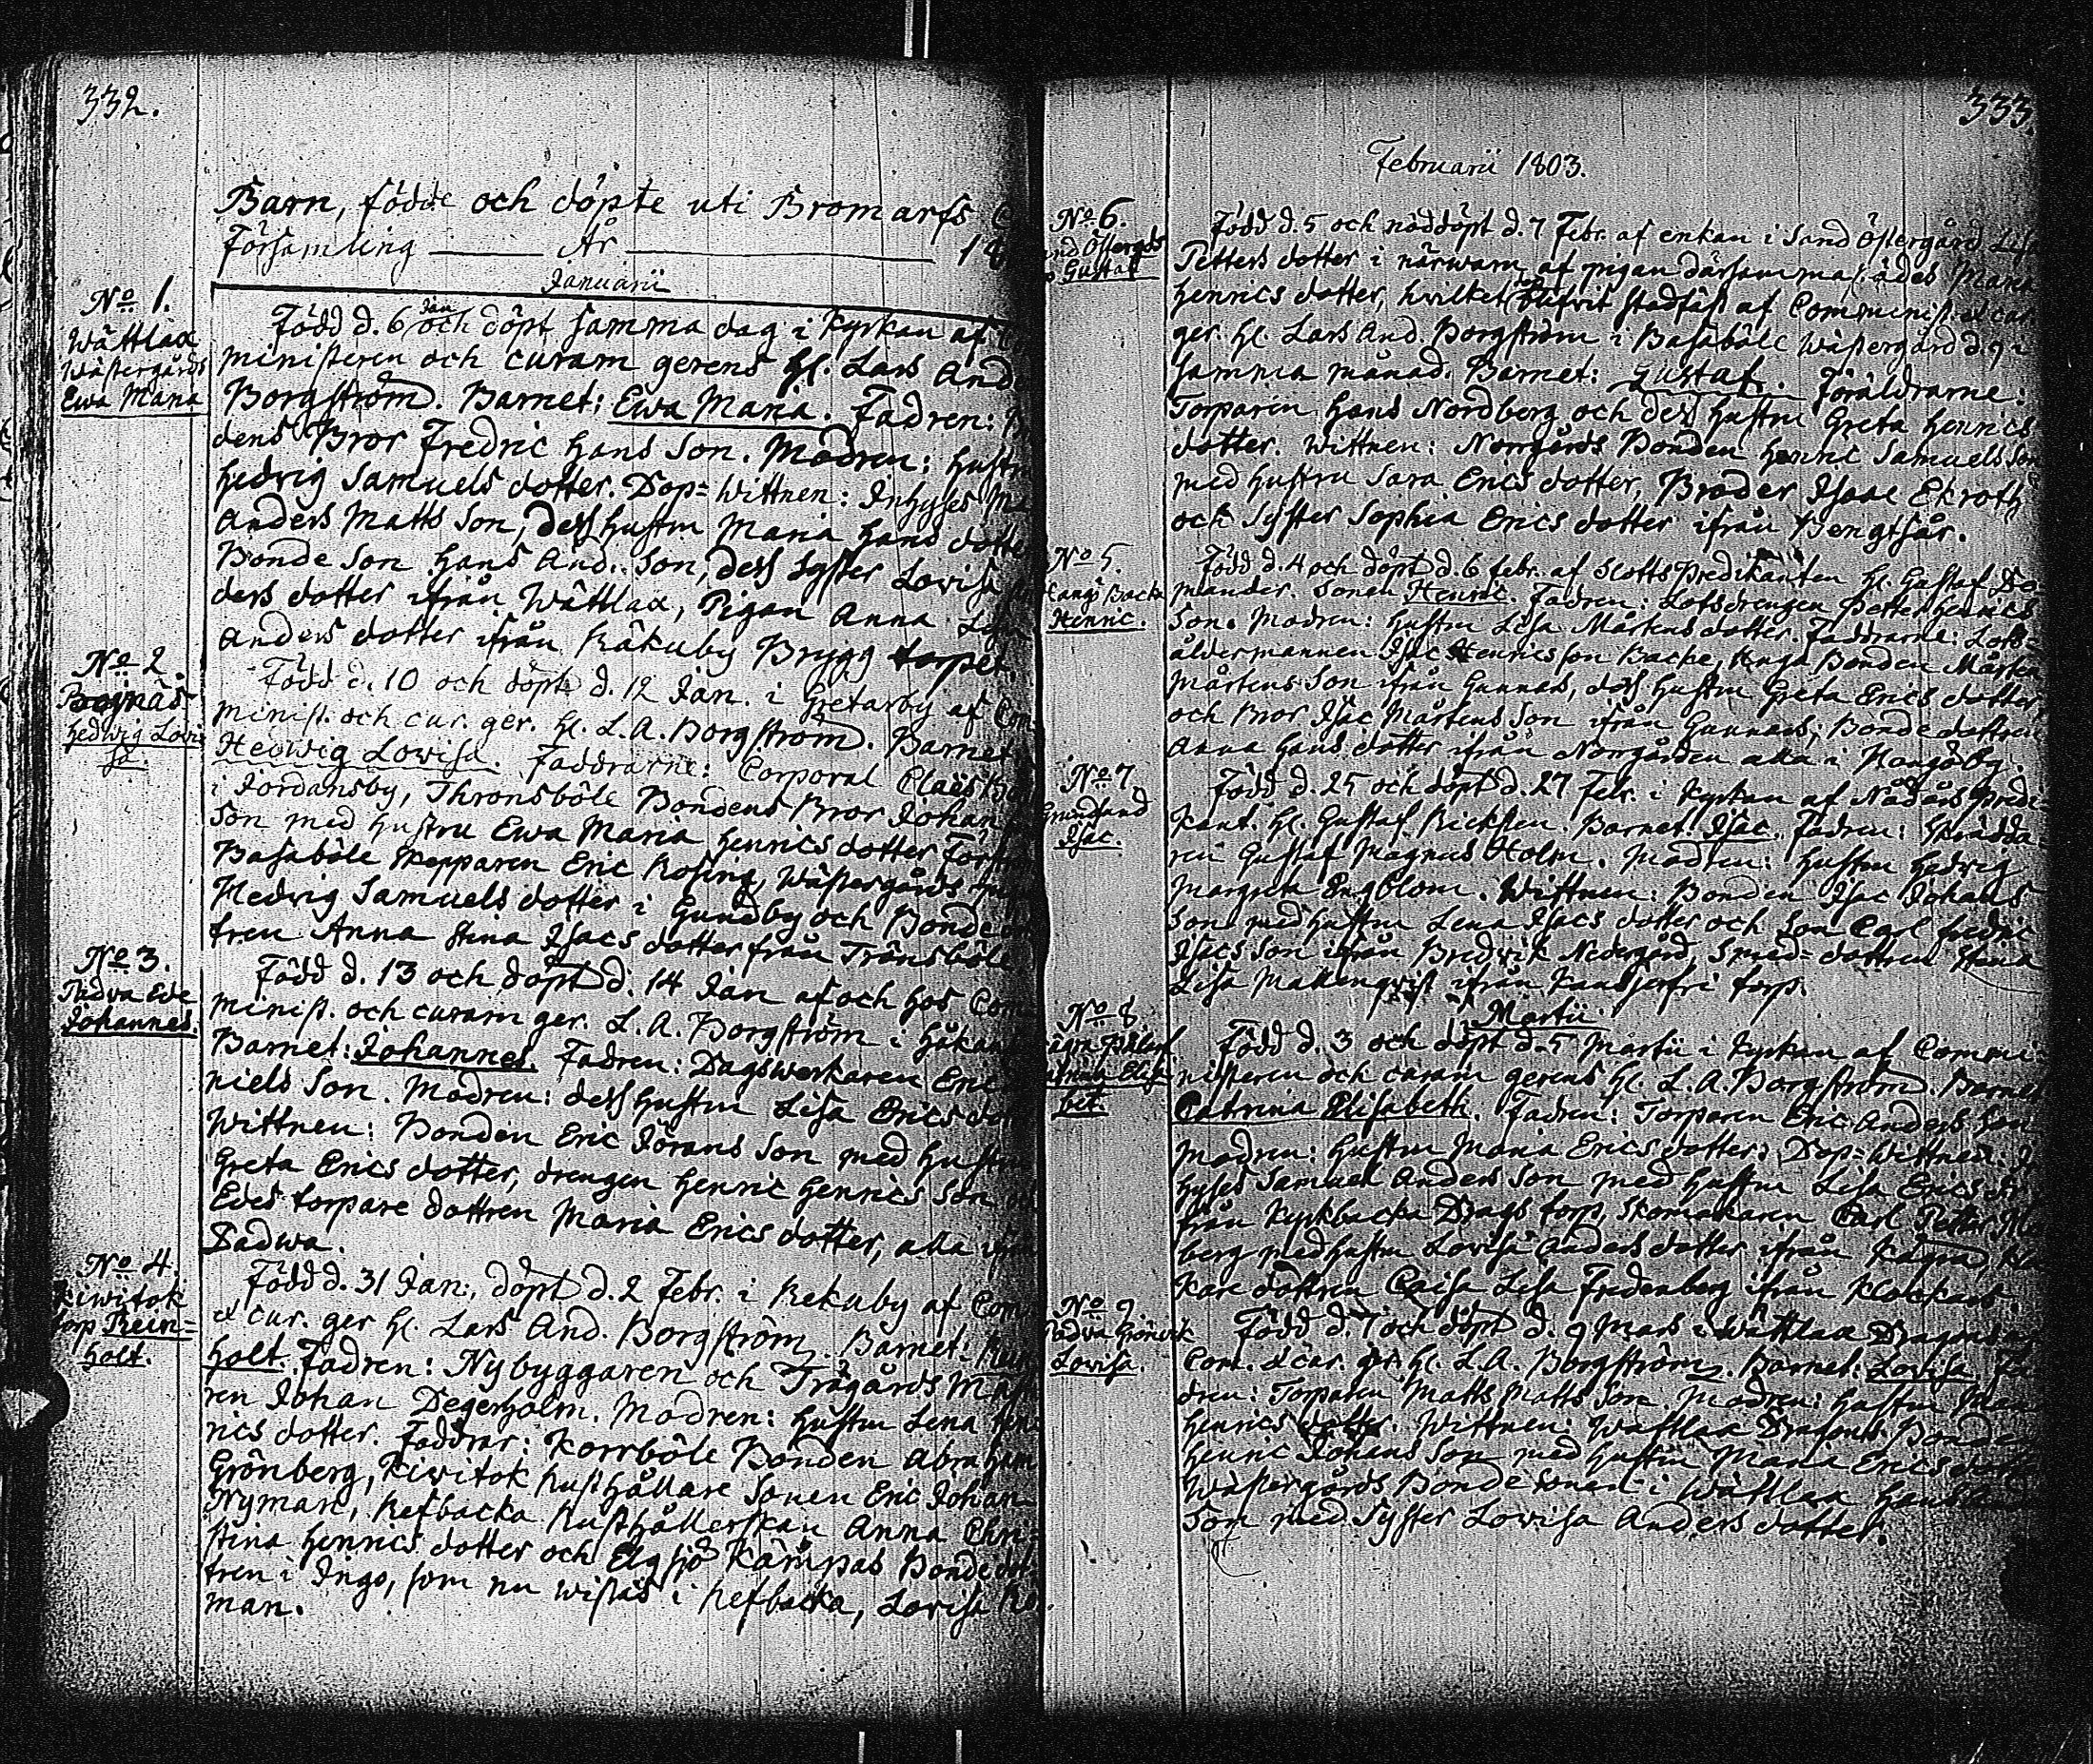 332.
Barn, födde och döpte uti Bromarfs
Församling År 18
Januarii
No 1.
Wättlax
Wästergårds
Ewa Maria
Född d. 6 Jan och döpt samma dag i Kyrkan af
ministeren och curam gerens Hl. Lars And
Borgström. Barnet: Ewa Maria. Fadren:
dens Bror Fredric Hans Son. Modren: Hustru
Hedvig Samuels dotter. Dop-Wittnen: Inhyses
Anders Matts Son, dess hustru Maria Hans dotter
Bonde Son Hans And. Son, dess Syster Lovisa
ders dotter ifrån Wättlax, Pigan Anna Lisa
Anders dotter ifrån Råkuby Brygg torpet.
No 2.
Bojnäs
Hedwig Lovi
sa.
Född d. 10 och döpt d. 12 Jan. i Gretarby af Com-
minist. och cur. ger. Hl. L. A. Borgström. Barnet
Hedwig Lowisa. Faddrarne: Corporal Claës
i Jordansby, Thronsböle Bondens Bror Johan
Son med Hustru Ewa Maria Henrics dotter
Basaböle Skepparen Eric Rosing, Wästergårds
Hedvig Samuels dotter i Gundby och Bonde
tren Anna Stina Isacs dotter från Trönsböle
No 3.
Padva Ede
Johannes.
Född d. 13 och döpt d. 14 Jan af och hos Com
minist. och curam ger. L. A. Borgström i Håkan
Barnet: Johannes. Fadren: Dagswerkaren Eric
niels Son. Modren: dess Hustru Lisa Erics
Wittnen: Bonden Eric Jörans Son med Hustru
Greta Erics dotter, drengen Henric Henrics Son
Edes torpare dottren Maria Erics dotter, alla
Padwa.
No 4.
Kiwitok
torp Rein-
holt.
Född d. 31 Jan:, döpt d. 2 Febr. i Rekuby af Com
& cur. ger Hl. Lars And. Borgström. Barnet: Rein
holt. Fadren: Nybyggaren och Trägårds
ren Johan Degerholm. Modren: Hustru Lena Hen-
rics dotter. Faddrar: Korrböle Bonden Abraham
Grönberg, Kiwitok Rusthållare Sonen Eric Johan
Nyman, Refbacka Rusthållerskan Anna Chri-
stina Henrics dotter och Elgsjö Kämpas Bonde dot
tren i Ingo, som nu wistas i Refbacka, Lovisa
man.
333.
Februarii 1803.
No 6.
Sand Östergds
Gustaf
Född d. 5 och nöddöpt d. 7 Febr. af enkan i Sand Östergård Lisa
Petters dotter i närwaru af pigan därsammastädes Maria
Henrics dotter, hwilket blifvit stadfäst af Comminist. & cur
ger. Hl. Lars And. Borgström i Basaböle Wästergård d. 9 i
samma månad. Barnet: Gustaf. Föräldrarne:
Torparen Hans Nordberg och dess hustru Greta Henrics
dotter. Wittnen: Norrgårds Bonden Henric Samuels Son
med Hustru Sara Erics dotter, Broder Isaac Ekroth
och Syster Sophia Erics dotter ifrån Bengtsår.
No 5.
Hangö Backa
Henric.
Född d. 4 och döpt d. 6 febr. af Slotts Predikanten Hl. Gustaf
mander. Sonen Henric. Fadren: Lotsdrengen Petter Henrics
Son. Modren: Hustru Lisa Mårtens dotter. Faddrarne: Lots-
åldermannen Isac Henricsson Backe, Unga Bonden Mårten
Mårtens Son ifrån Gunnars, dess Hustru Greta Erics dotter,
och Bror Isac Mårtens Son ifrån Gunnars, Bonde dottren
Anna Hans dotter ifrån Norrgården alla i Hangöby.
No 7.
Grundsand
Isac.
Född d. 25 och döpt d. 27 Febr. i Kyrkan af Nådårs Predi-
kant. Hl. Gustaf Rickstén. Barnet Isac. Fadren: Skrädda-
ren Gustaf Magnus Holm. Modren: Hustru Hedwig
Margreta Engblom. Wittnen: Bonden Isac Johans
Son med Hustru Lena Isacs dotter och Son Carl Fredric
Isacs Son ifrån Bredwik Nedergård, Smed-dottren Stina
Lisa Malmqvist ifrån torp.
Martii
No 8.
Född d. 3 och döpt d. 5 Martii i Kyrkan af Commi-
nisteren och curam gerens Hl. L. A. Borgström. Barnet
Catrina Elisabeth. Fadren: Torparen Eric Anders Son
Modren: Hustru Maria Erics dotter. Dop-Wittnen: In
hyses Samuel Anders Son med Hustru Lisa Erics
från Kyrkbacka Drags torp, Skomakaren Carl Petter
berg med Hustru Lovisa Anders dotter ifrån Kägra, Kloc
kare dottren Caisa Lisa Fredenberg ifrån Klockars.
No 9.
Padva Grönvik
Lovisa.
Född d. 7 och döpt d. 9 Mars i Wättlax Dragons
Com. & cur. ger. Hl. L. A. Borgström. Barnet: Lovisa Fa
dren: Torparen Matts Matts Son. Modren: Hustru Maria
Henrics dotter. Wittnen: Wättlax Dragons Bonden
Henric Johans Son med Hustru Maria Erics dotter
Wästergårds Bonde Sonen i Wättlax Hans And
Son med Syster Lovisa Anders dotter.